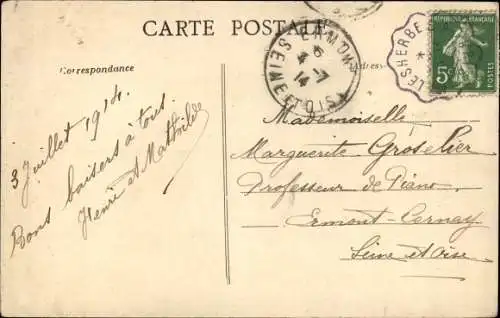 CARTE POSTALE
Correspondance
Adresse
ERMONT
4 - 7
14
SEINE ET OISE
LES HERBE
RÉPUBLIQUE FRANÇAISE
5c
POSTES
3 Juillet 1914.
Bons baisers à tous.
Henri et Mathilde
Mademoiselle
Marguerite Groselier
Professeur de Piano
Ermont-Cernay
Seine et Oise